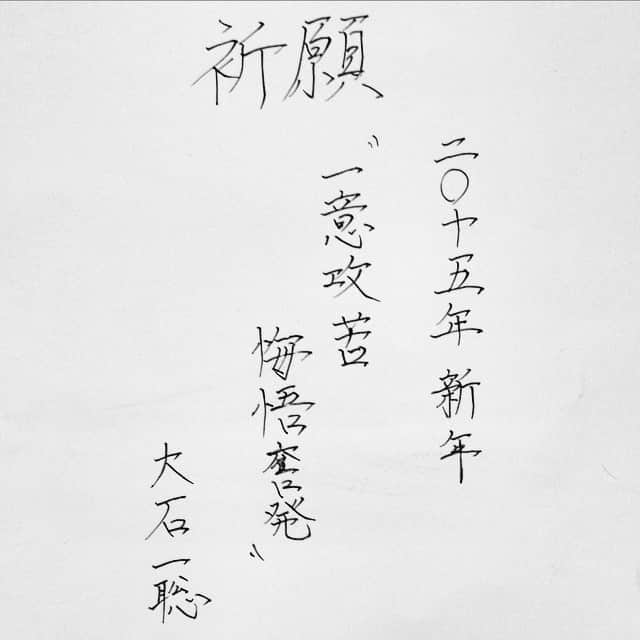 祈願
二〇十五年 新年
〝一意攻苦
悔悟奮発〟
大石一聡